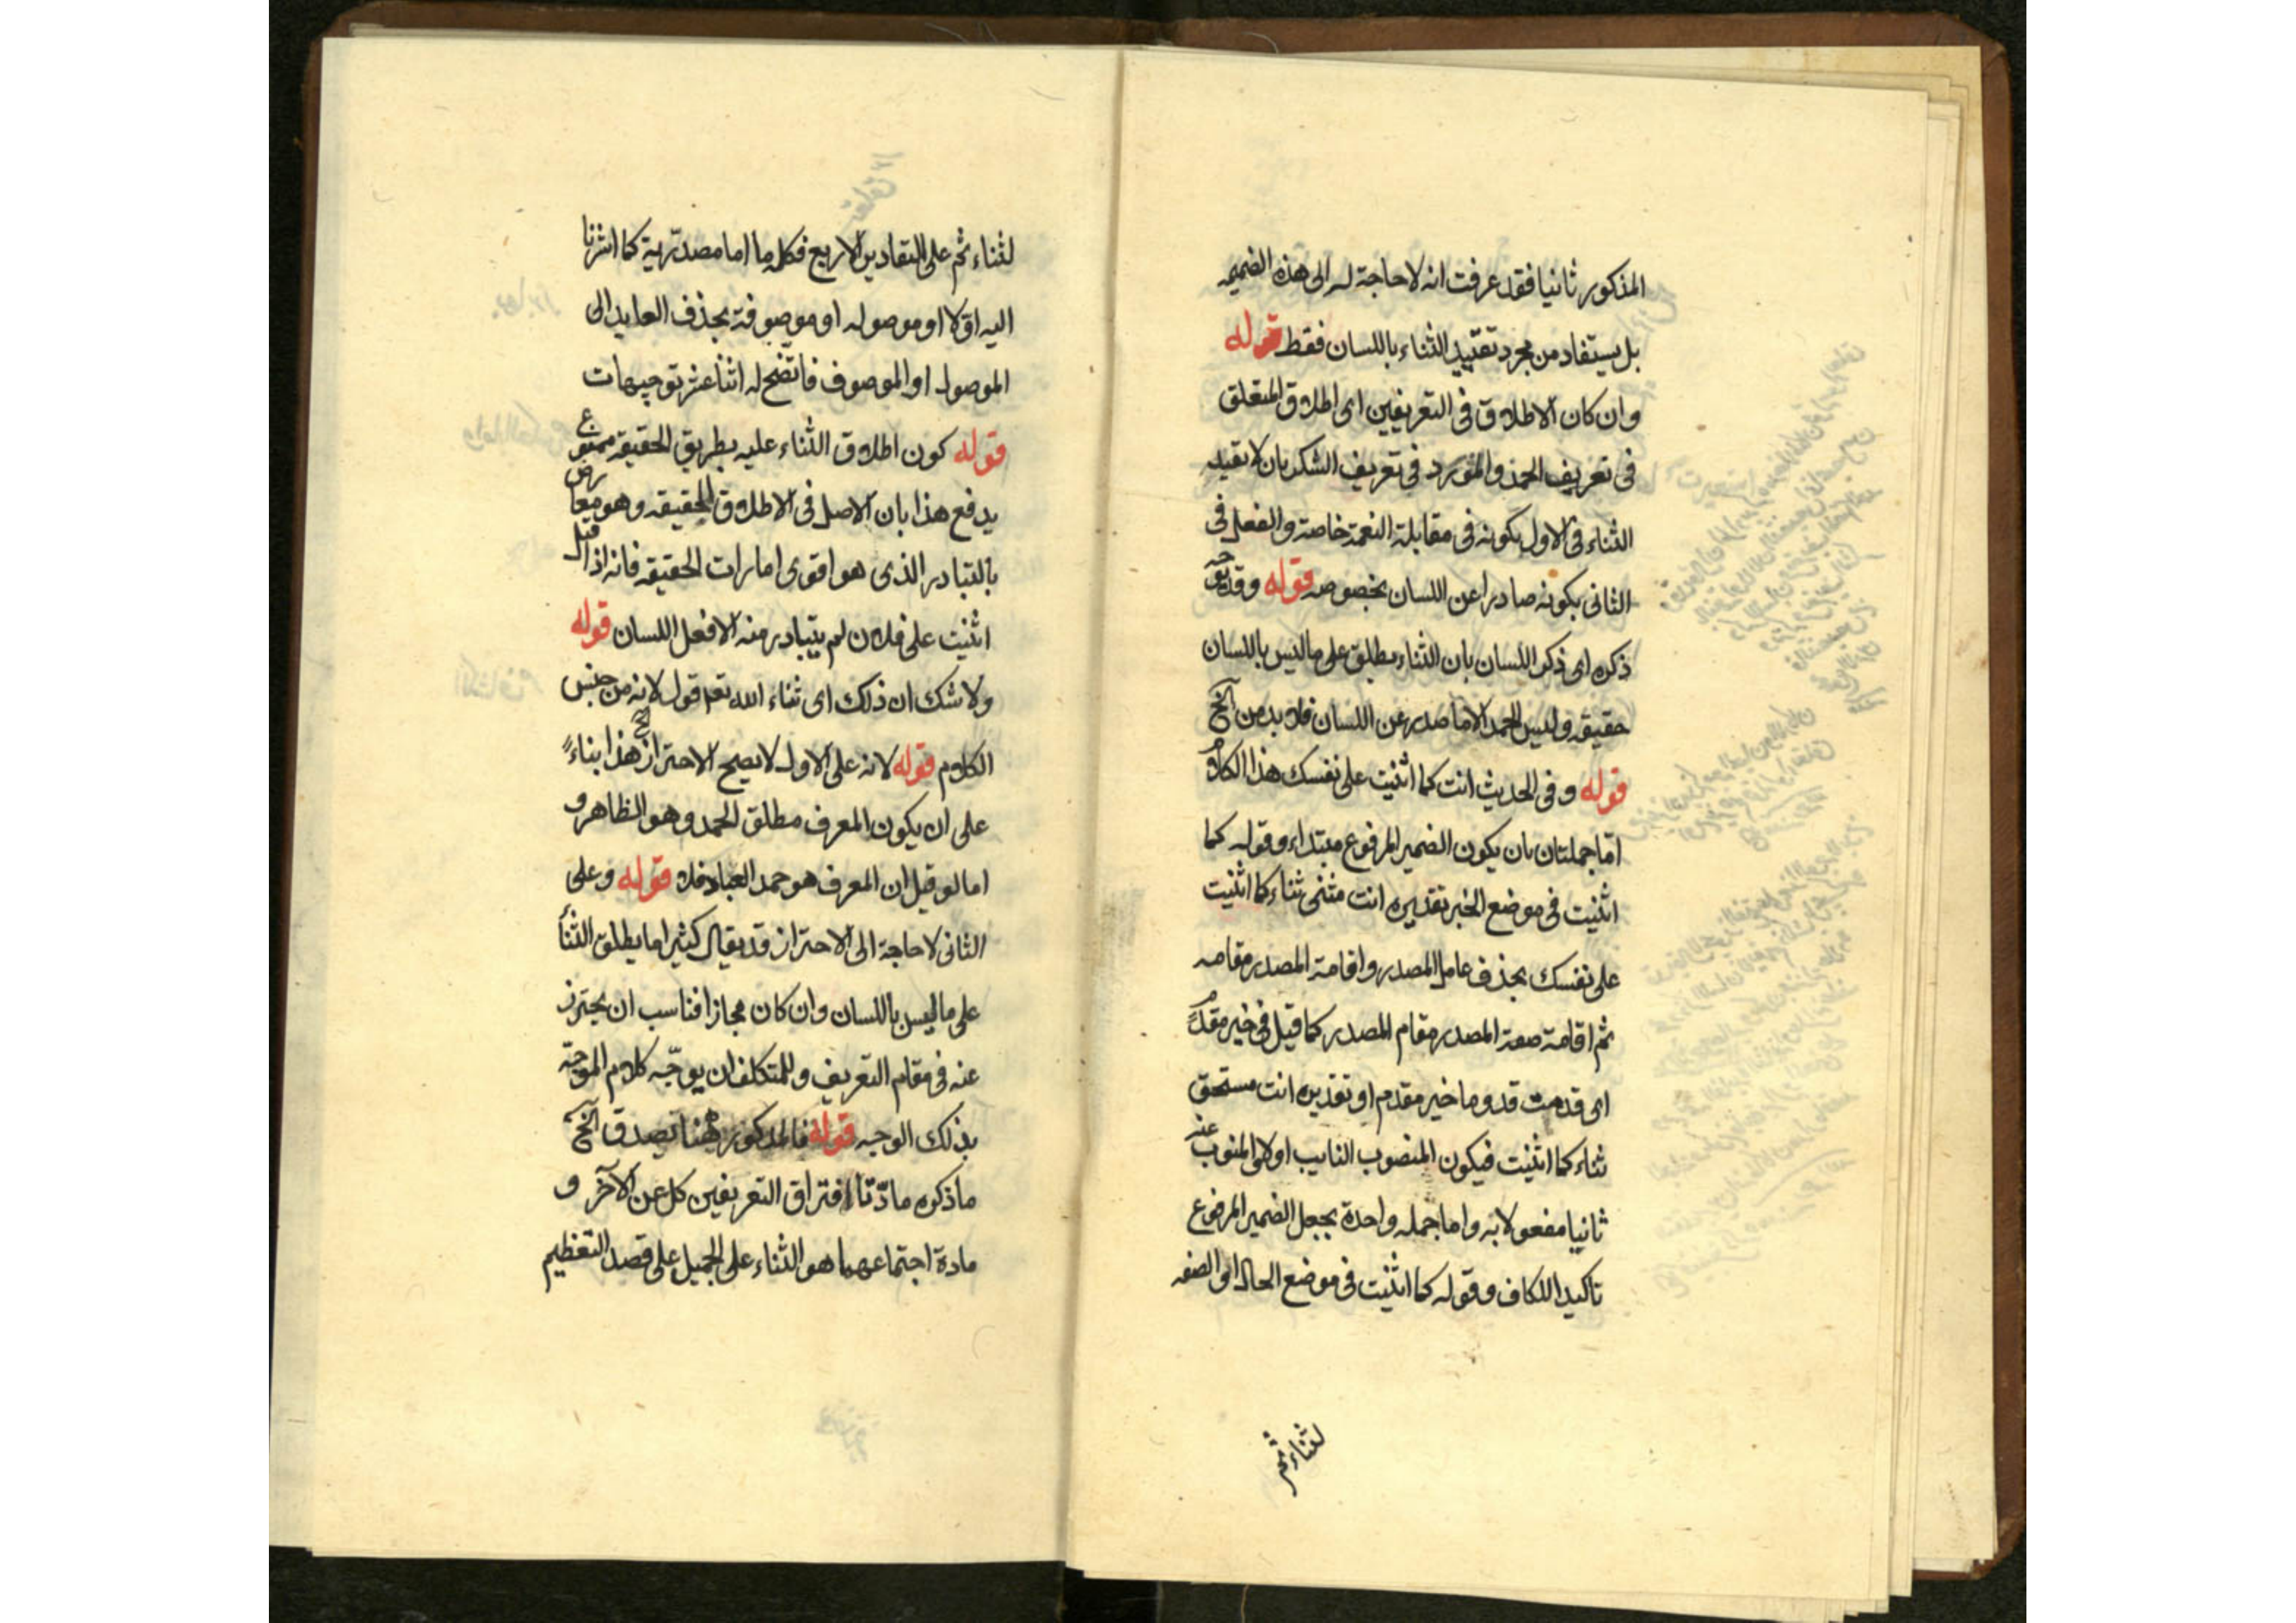 المذكور ثانيا فقد عرفت انه لا حاجة له الى هذه الضميمه
بل يستفاد من مجرد تقييد الثناء باللسان فقط قوله
وان كان الاطلاق فى التعريفين اى اطلاق المتعلق
فى تعريف الحمد والمورد فى تعريف الشكر بان لا يقيد
الثناء فى الاول بكونه فى مقابلة النعمة خاصة والفعل فى
الثانى بكونه صادرا عن اللسان بخصوصه قوله وقد يوجه
ذكره اى ذكر اللسان بان الثناء يطلق على ما ليس باللسان
حقيقه وليس الحمد الا ما صدر عن اللسان فلا بد من الخ
قوله وفى الحديث انت كما اثنيت على نفسك هذا الكلام
اما جملتان بان يكون الضمير المرفوع مبتداء وقوله كما
اثنيت فى موضع الخبر تقديره انت مثنى ثناء كما اثنيت
على نفسك بحذف عامل المصدر واقامة المصدر مقامه
ثم اقامة صفة المصدر مقام المصدر كما قيل فى خير مقدم
اى قدمت قدوما خير مقدم او تقديره انت مستحق
ثناء كما اثنيت فيكون المنصوب النايب اولا والمنوب عنه
ثانيا مفعولا به واما جمله واحدة بجعل الضمير المرفوع
تاكيدا للكاف وقوله كما اثنيت فى موضع الحال او الصفه
لثناء ثم
لثناء ثم على التقادير الاربع فكلمه ما اما مصدرية كما اشرنا
اليه اولا او موصوله او موصوفة بحذف العايد الى
الموصول او الموصوف فاتضح له اثنا عشر توجيهات
قوله كون اطلاق الثناء عليه بطريق الحقيقه ممنوع
يدفع هذا بان الاصل فى الاطلاق الحقيقه وهو معارض
بالتبادر الذى هو اقوى امارات الحقيقه فانه اذا قيل
اثنيت على فلان لم يتبادر منه الا فعل اللسان قوله
ولا شك ان ذلك اى ثناء الله تعم قول لانه من جنس
الكلام قوله لانه على الاول لا يصح الاحتراز الخ هذا بناءً
على ان يكون المعرف مطلق الحمد وهو الظاهر و
اما لو قيل ان المعرف هو حمد العباد فلا قوله وعلى
الثانى لا حاجة الى الاحتراز قد يقال كثيرا ما يطلق الثناء
على ما ليس باللسان وان كان مجازا فناسب ان يحترز
عنه فى مقام التعريف وللمتكلف ان يوجّه كلام الموجّه
بذلك الوجه قوله فالمذكور ههنا يصدق الخ
ما ذكره مادّتا افتراق التعريفين كل عن الآخر و
مادة اجتماعهما هو الثناء على الجميل على قصد التعظيم